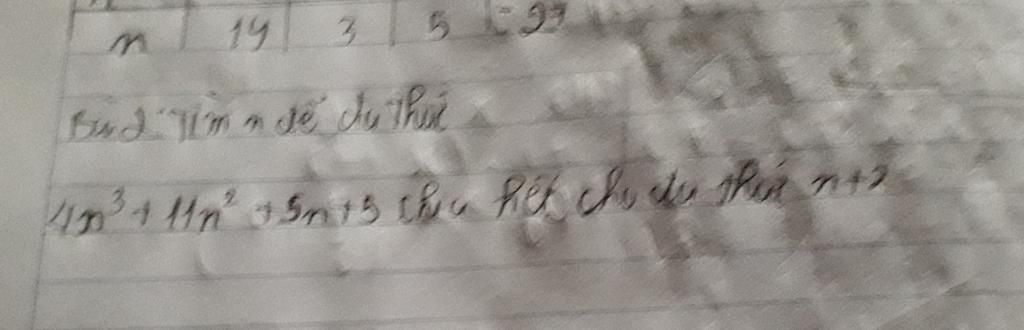 n 14 3 5 -27
Bài 2: Tìm n để đa thức
4n³ + 11n² + 5n + 5 chia hết cho đa thức n+2